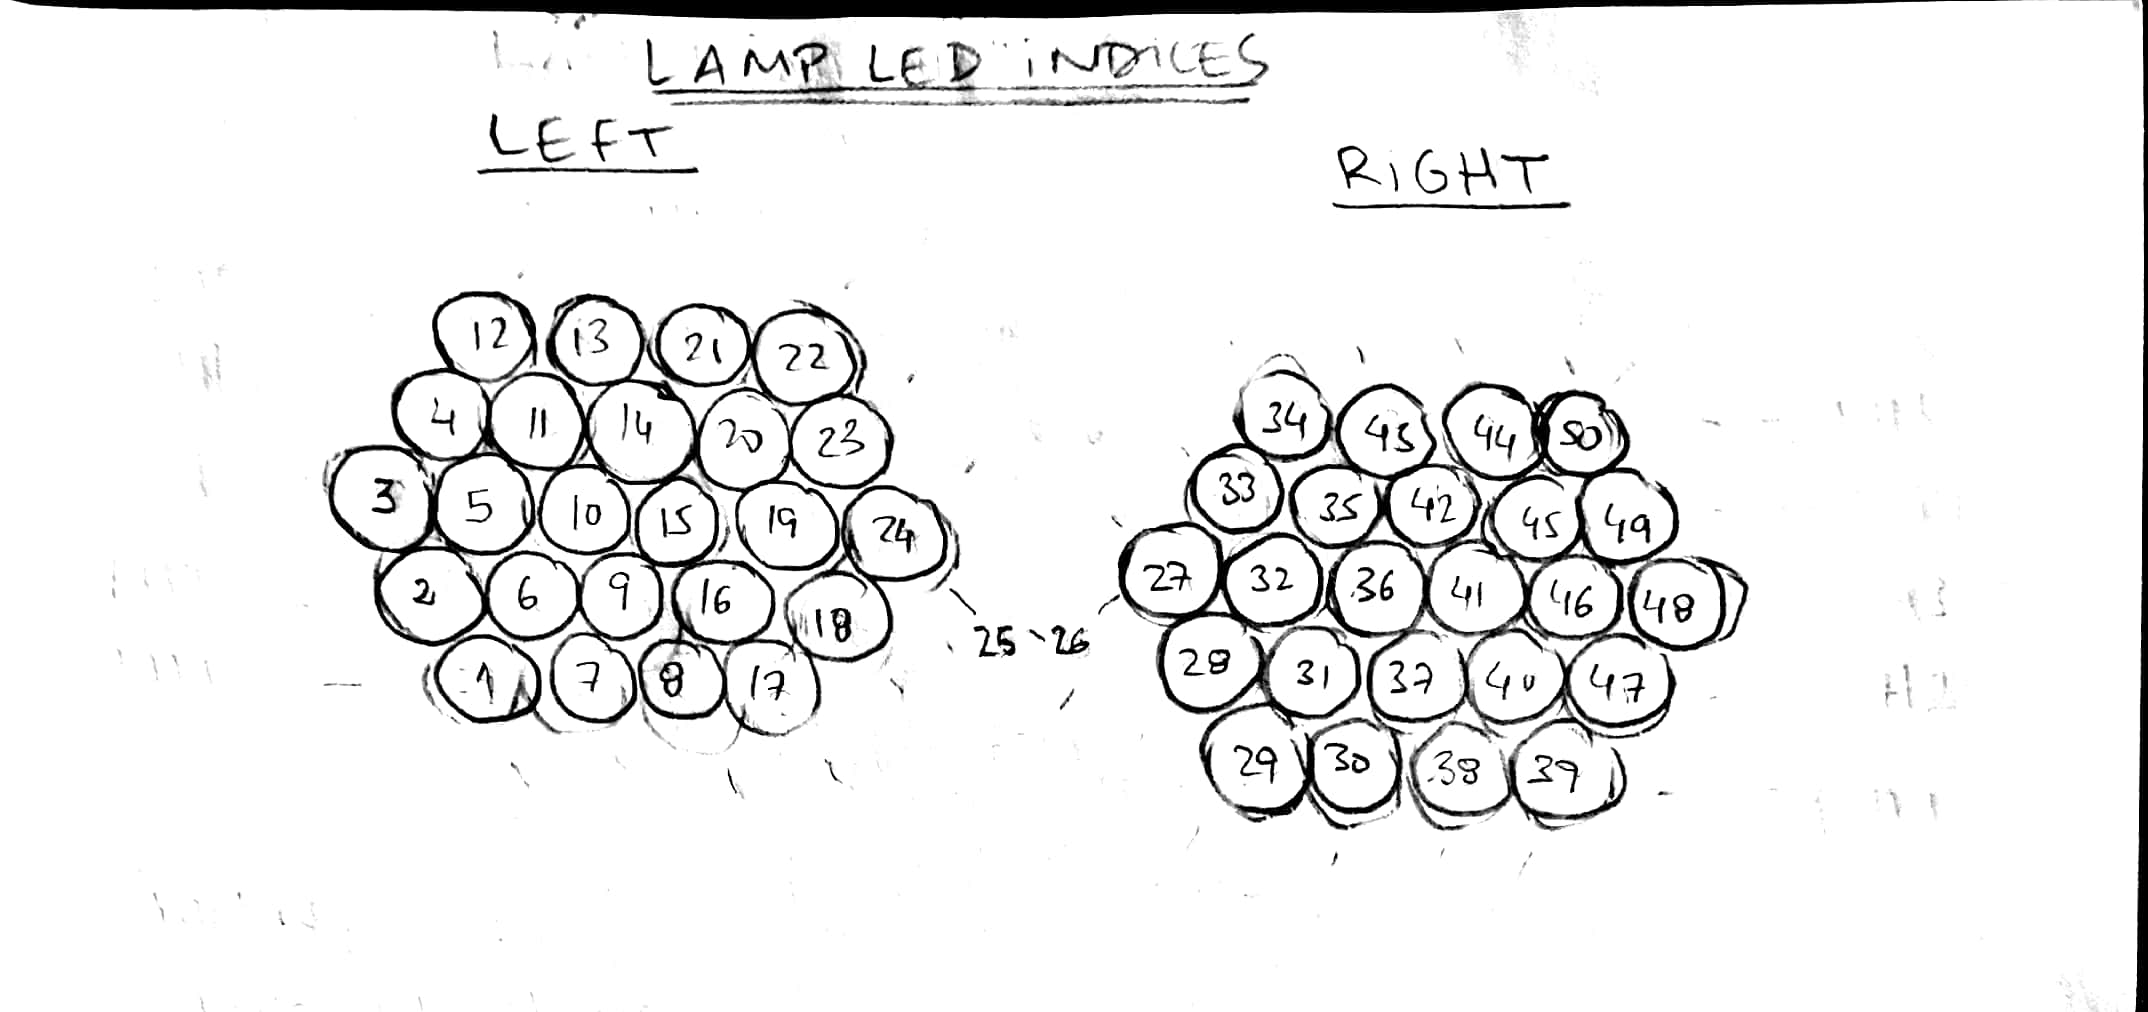 LAMP LED iNDiCES
LEFT
RiGHT
12 13 21 22
4 11 14 20 23
3 5 10 15 19 24
2 6 9 16 18
1 7 8 17
25 26
34 43 44 50
33 35 42 45 49
27 32 36 41 46 48
28 31 37 40 47
29 30 38 39